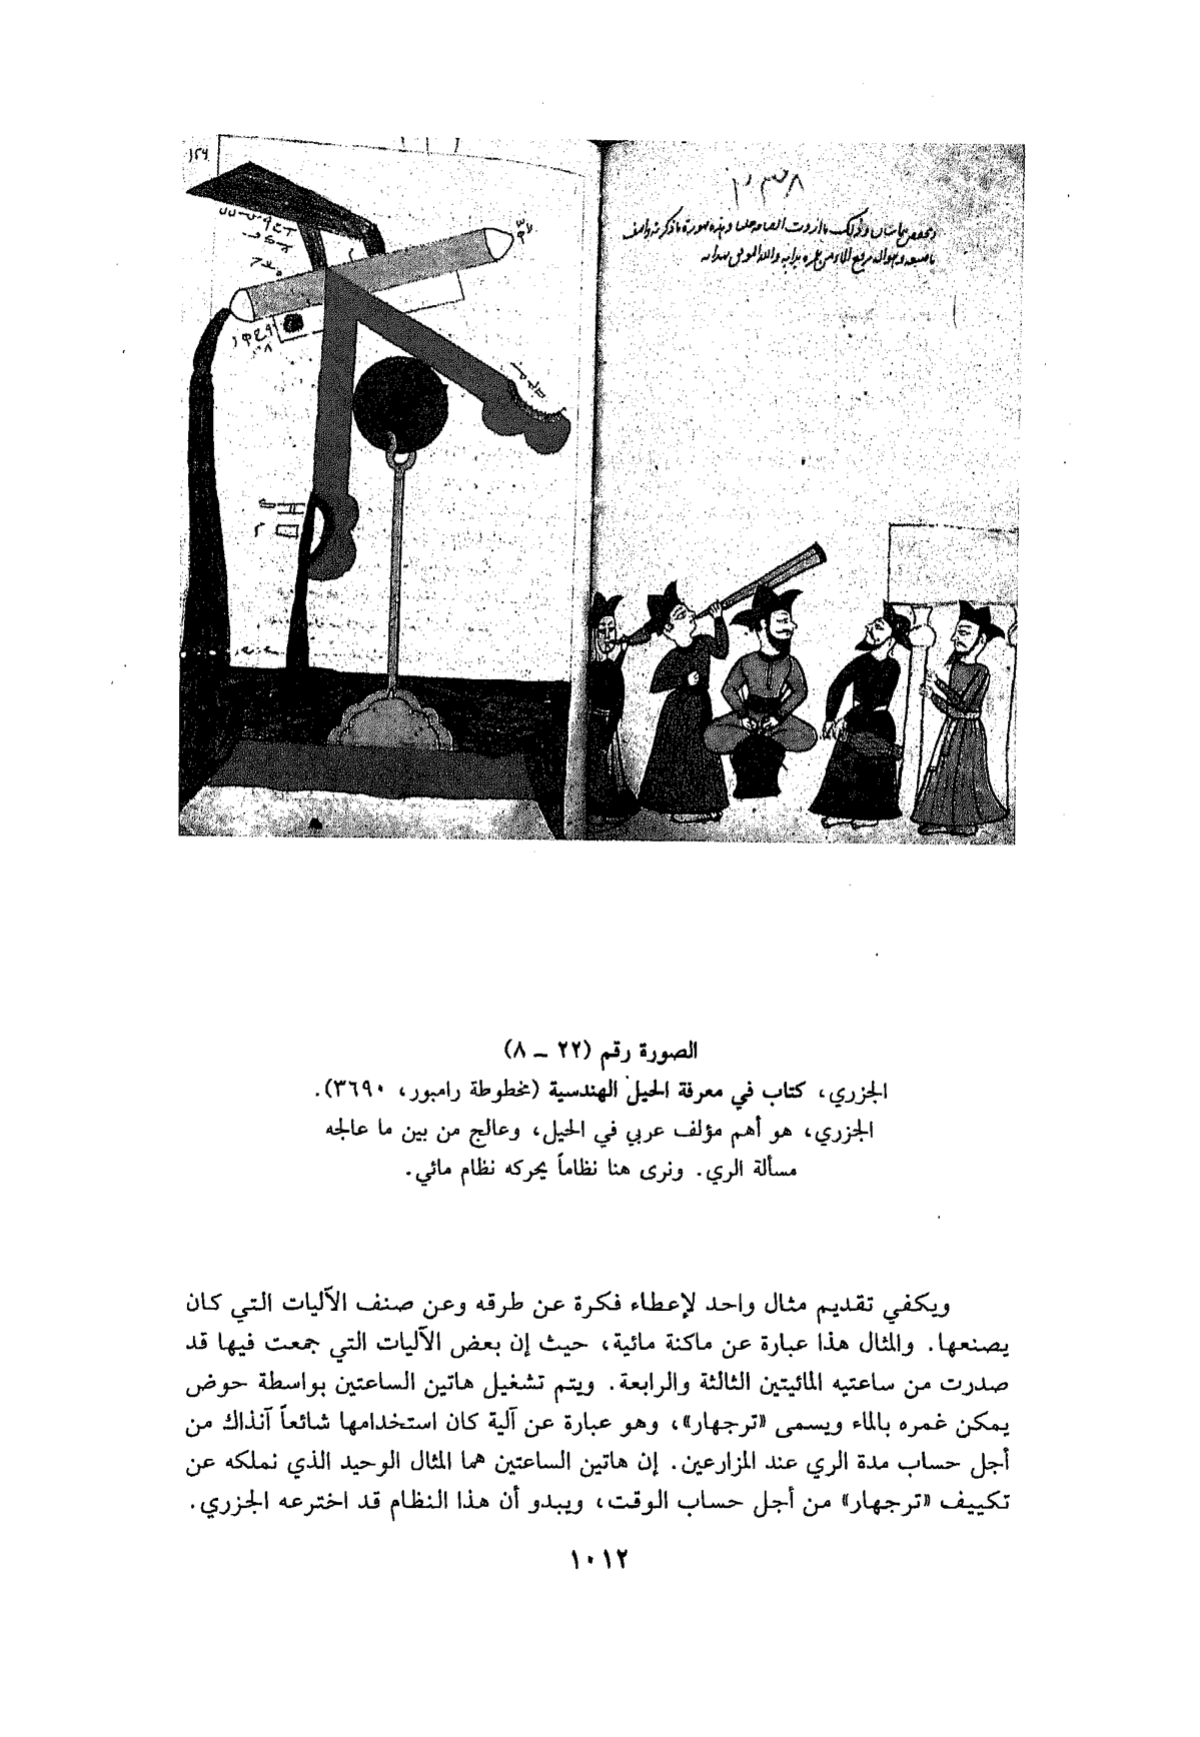 ١٢٩
٢٣٨
الصورة رقم (٢٢ ـ ٨)
الجزري، كتاب في معرفة الحيل الهندسية (مخطوطة رامبور، ٣٦٩٠).
الجزري، هو أهم مؤلف عربي في الحيل، وعالج من بين ما عالجه
مسألة الري. ونرى هنا نظاماً يحركه نظام مائي.
ويكفي تقديم مثال واحد لإعطاء فكرة عن طرقه وعن صنف الآليات التي كان
يصنعها. والمثال هذا عبارة عن ماكنة مائية، حيث إن بعض الآليات التي جمعت فيها قد
صدرت من ساعتيه المائيتين الثالثة والرابعة. ويتم تشغيل هاتين الساعتين بواسطة حوض
يمكن غمره بالماء ويسمى «ترجهار»، وهو عبارة عن آلية كان استخدامها شائعاً آنذاك من
أجل حساب مدة الري عند المزارعين. إن هاتين الساعتين هما المثال الوحيد الذي نملكه عن
تكييف «ترجهار» من أجل حساب الوقت، ويبدو أن هذا النظام قد اخترعه الجزري.
١٠١٢